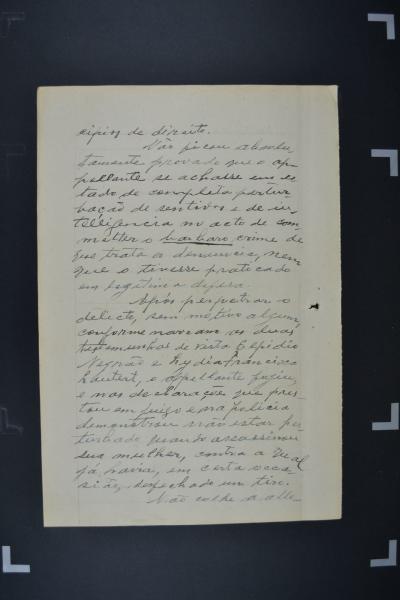 cipios de direito.
Não ficou absolu
tamente provado que o ap-
pellante se achasse em es
tado de completa pertur
bação de sentidos e de in-
telligencia no acto de com
metter o barbaro crime de
que trata a denuncia, nem
que o tivesse praticado
em legitima defesa.
Após perpetrar o
delicto, sem motivo algum,
conforme narram as duas
testemunhas de vista Elpidio
Negrão e Lydia Francisca
o appellante fugiu,
e nas declarações que pres
tou em juizo e na policia
demonstrou não estar per
turbado quando assassinou
sua mulher, contra a qual
já, havia, em certa occa-
sião, desfechado um tiro.
Não colhe a alle-